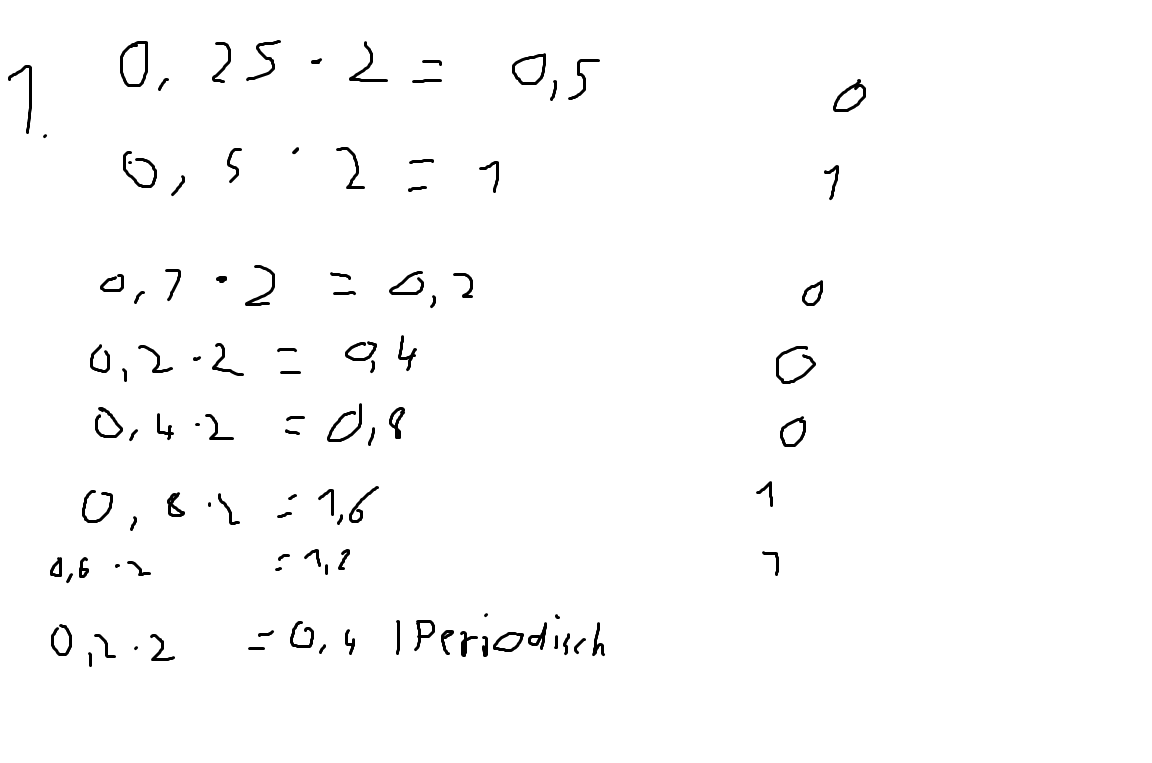 1. 0,25 · 2 = 0,5 0
0,5 · 2 = 1 1
0,1 · 2 = 0,2 0
0,2 · 2 = 0,4 0
0,4 · 2 = 0,8 0
0,8 · 2 = 1,6 1
0,6 · 2 = 1,2 1
0,2 · 2 = 0,4 | Periodisch